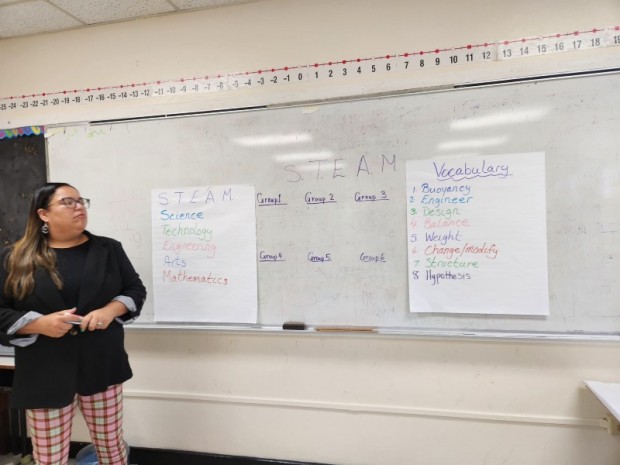 -25 -24 -23 -22 -21 -20 -19 -18 -17 -16 -15 -14 -13 -12 -11 -10 -9 -8 -7 -6 -5 -4 -3 -2 -1 0 1 2 3 4 5 6 7 8 9 10 11 12 13 14 15 16 17 18 19
S.T.E.A.M
S.T.E.A.M.
Science
Technology
Engineering
Arts
Mathematics
Group 1 Group 2 Group 3
Group 4 Group 5 Group 6
Vocabulary
1. Buoyancy
2. Engineer
3. Design
4. Balance
5. Weight
6. Change/modify
7. Structure
8. Hypothesis